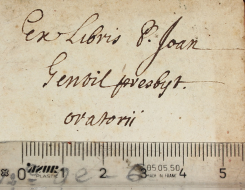 Ex Libris P. Joan
Gentil presbyt.
oratorii
0 1 2 3 4 5